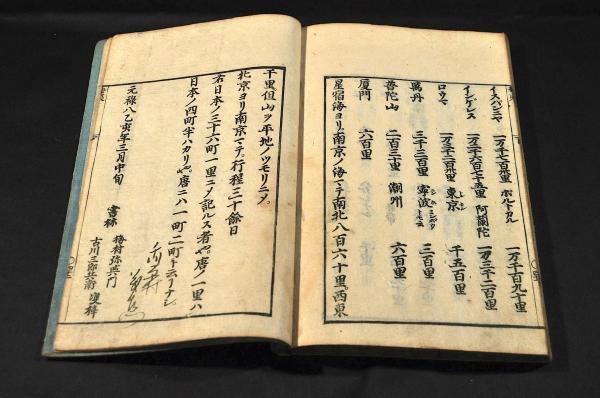 イスパンニヤ 一万千七百九里 ホルトカル 一万千百九十里
インゲレス 一万二千六百七十五里 阿蘭陀 一万三千二百里
ロウマ 東京 千五百里
萬丹 三千三百里 寧波 三百里
普陀山 二百三十里 潮州 六百里
厦門 六百里
星宿海ヨリ南京ノ海マテ南北八百六十里西東
千里但山ヲ平地ノツモリニメ
北京ヨリ南京マテ行程三十余日
右日本ノ三十六町一里ニメ記ルス者也唐ノ一里ハ
日本ノ四町半ハカリ也唐ニハ一町二町ト云フナシ
元禄八乙亥年三月中旬
書林 梅村弥右衛門
古川三郎兵衛 壽梓